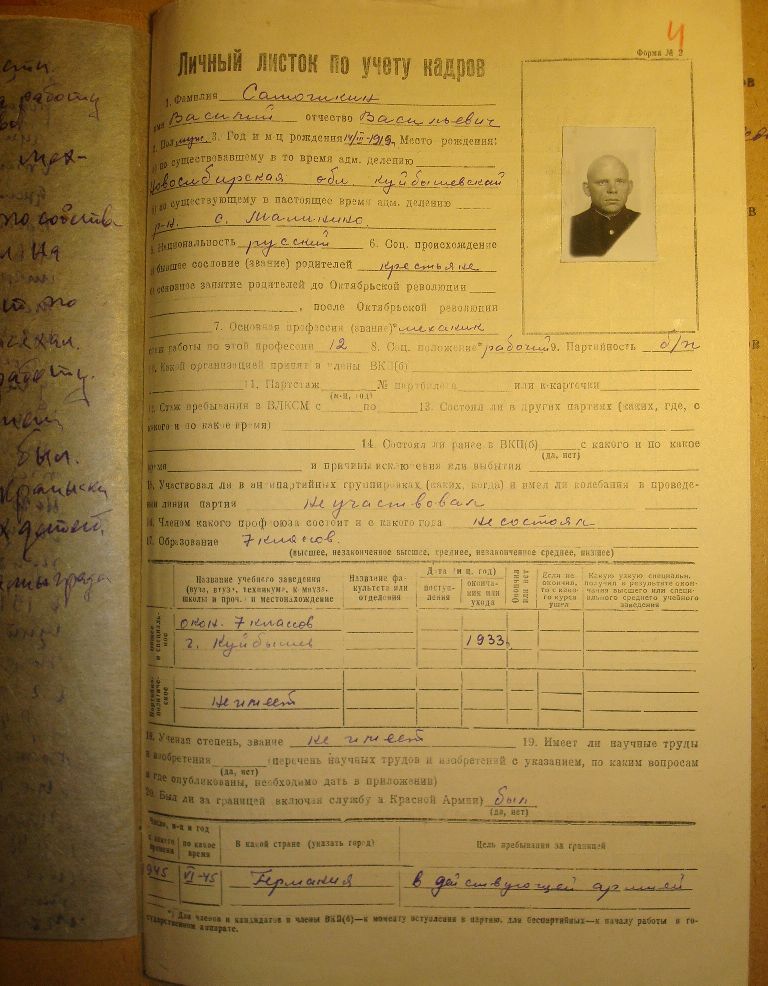 4
Форма № 2
Личный листок по учету кадров
1. Фамилия Самочикин
имя Василий отчество Васильевич
2. Пол муж. 3. Год и м-ц рождения 14/III-1919 Место рождения:
а) по существовавшему в то время адм. делению
Новосибирская обл. Куйбышевский
б) по существующему в настоящее время адм. делению
р-н. с.
5. Национальность русский 6. Соц. происхождение
а) бывшее сословие (звание) родителей крестьяне
б) основное занятие родителей до Октябрьской революции
, после Октябрьской революции
7. Основная профессия (звание)* механик
стаж работы по этой профессии 12 8. Соц. положение* рабочий 9. Партийность б/п
10. Какой организацией принят в члены ВКП(б)
11. Партстаж № партбилета или к-карточки
(м-ц, год)
12. Стаж пребывания в ВЛКСМ с по 13. Состоял ли в других партиях (каких, где, с
какого и по какое время)
14. Состоял ли ранее в ВКП(б) с какого и по какое
(да, нет)
время и причины исключения или выбытия
15. Участвовал ли в антипартийных группировках (каких, когда) и имел ли колебания в проведе-
нии линии партии не участвовал
16. Членом какого профсоюза состоит и с какого года не состоял
17. Образование 7 классов.
(высшее, незаконченное высшее, среднее, незаконченное среднее, низшее)
Название учебного заведения (вуза, втуза, техникума, к-муза, школы и проч.) и местонахождение
Название факультета или отделения
Дата (м-ц, год)
поступления
окончания или ухода
Окончил или нет
Если не окончил, то с какого курса ушел
Какую узкую специальн. получил в результате окончания высшего или специального среднего учебного заведения
окон. 7 классов
г. Куйбышев 1933
Партийно-политическое
Не имеет
18. Ученая степень, звание не имеет 19. Имеет ли научные труды
и изобретения (перечень научных трудов и изобретений с указанием, по каким вопросам
(да, нет)
и где опубликованы, необходимо дать в приложении)
20. Был ли за границей включая службу в Красной Армии) был
(да, нет)
Число, м-ц и год
с какого времени
по какое время
В какой стране (указать город)
Цель пребывания за границей
1945 VI-45 Германия в действующей армией
*) Для членов и кандидатов в члены ВКП(б)—к моменту вступления в партию, для беспартийных—к началу работы в го-
сударственном аппарате.